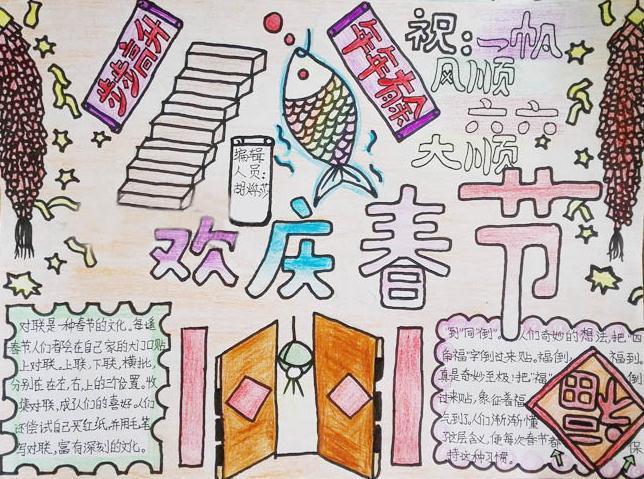 步步高升
年年有余
祝：一帆
风顺
六六
大顺
编辑
人员：
欢庆春节
对联是一种春节的文化。每逢
春节人们都会在自己家的大门口贴
上对联。上联，下联，横批，
分别在在左，右，上的三个位置。收
集对联，成了人们的喜好。人们
还尝试自己买红纸，并用毛笔
写对联，富有深刻的文化。
"到"同"倒"。人们奇妙的想法，把"四
角福"字倒过来贴。福倒，福到。
真是奇妙至极！把"福"倒
过来贴，象征着福
气到了。人们渐渐懂
这层含义，使每次春节都保
持这种习惯。
福